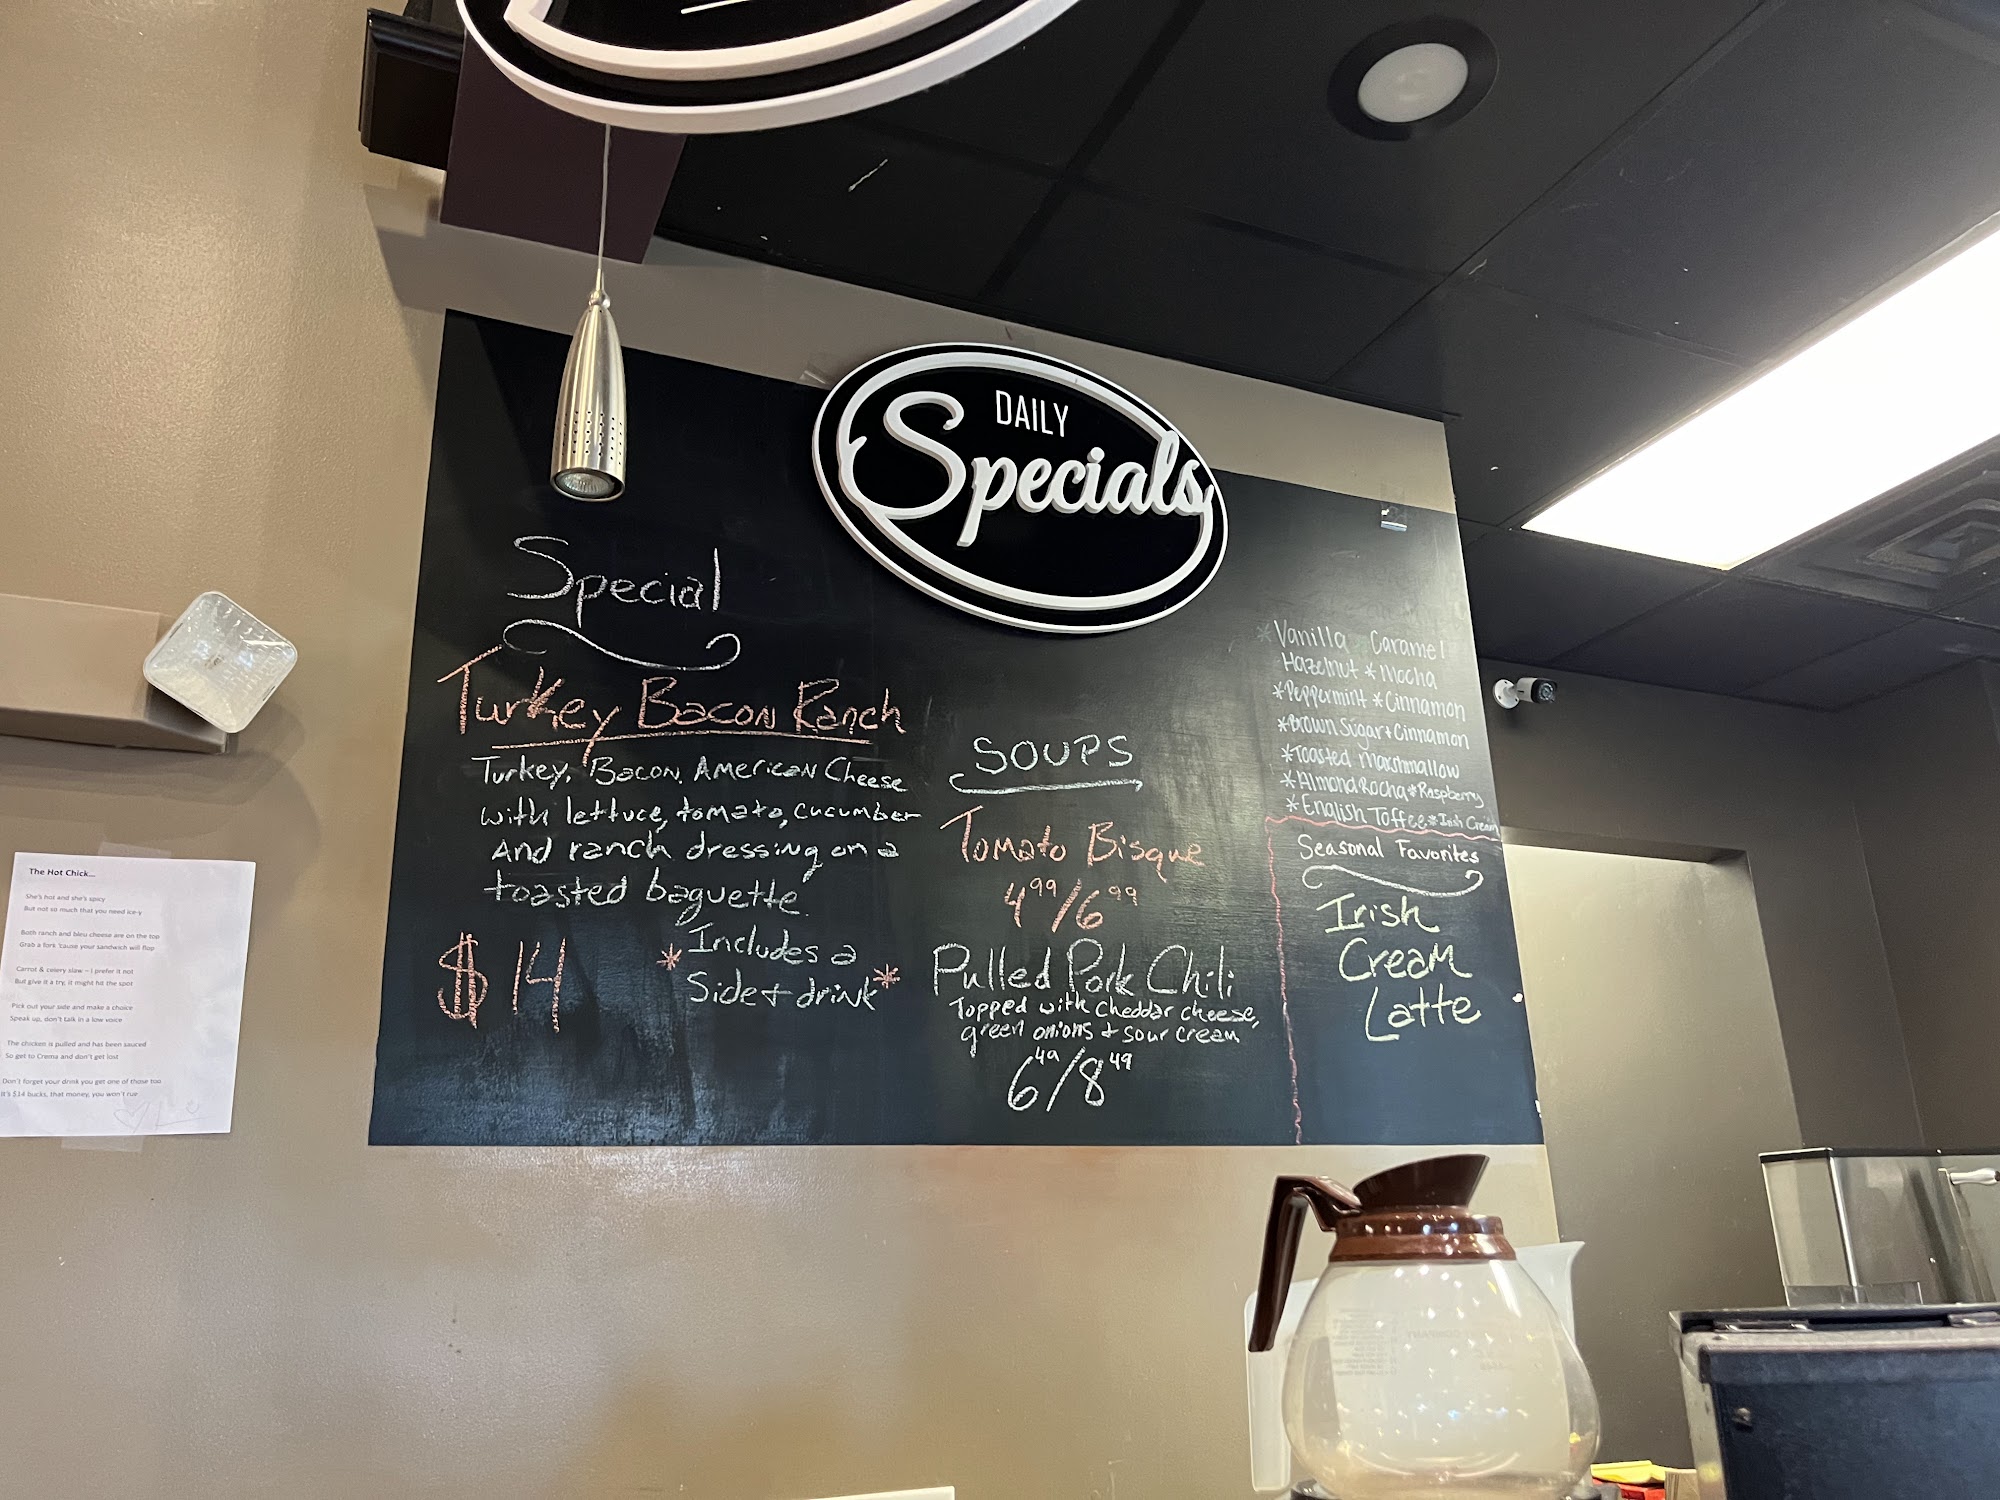 DAILY
Specials
Special
Turkey Bacon Ranch
Turkey, Bacon, American Cheese
with lettuce, tomato, cucumber
And ranch dressing on a
toasted baguette
$14
*Includes a
Side + drink*
SOUPS
Tomato Bisque
4.99/6.99
Pulled Pork Chili
Topped with cheddar cheese,
green onions + sour cream
6.49/8.49
*Vanilla Caramel
Hazelnut *Mocha
*Peppermint *Cinnamon
*Brown Sugar+Cinnamon
*Toasted Marshmallow
*Almond Rocha*Raspberry
*English Toffee*Irish Cream
Seasonal Favorites
Irish
Cream
Latte
The Hot Chick...
She's hot and she's spicy
But not so much that you need ice-y
Both ranch and bleu cheese are on the top
Grab a fork 'cause your sandwich will flop
Carrot & celery slaw – I prefer it not
But give it a try, it might hit the spot
Pick out your side and make a choice
Speak up, don't talk in a low voice
The chicken is pulled and has been sauced
So get to Crema and don't get lost
Don't forget your drink you get one of those too
It's $14 bucks, that money, you won't rue